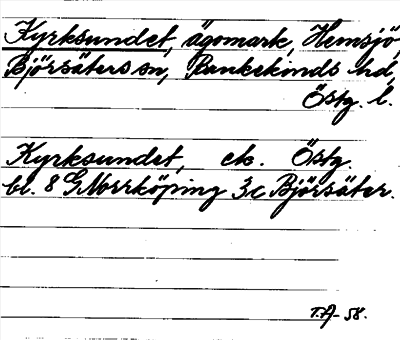 Kyrksundet, ägomark, Hemsjö,
Björsäters sn, Bankekinds hd,
Östg. l.
Kyrksundet, ek. Östg.
bl. 8 G Norrköping 3c Björsäter.
T.A-58.